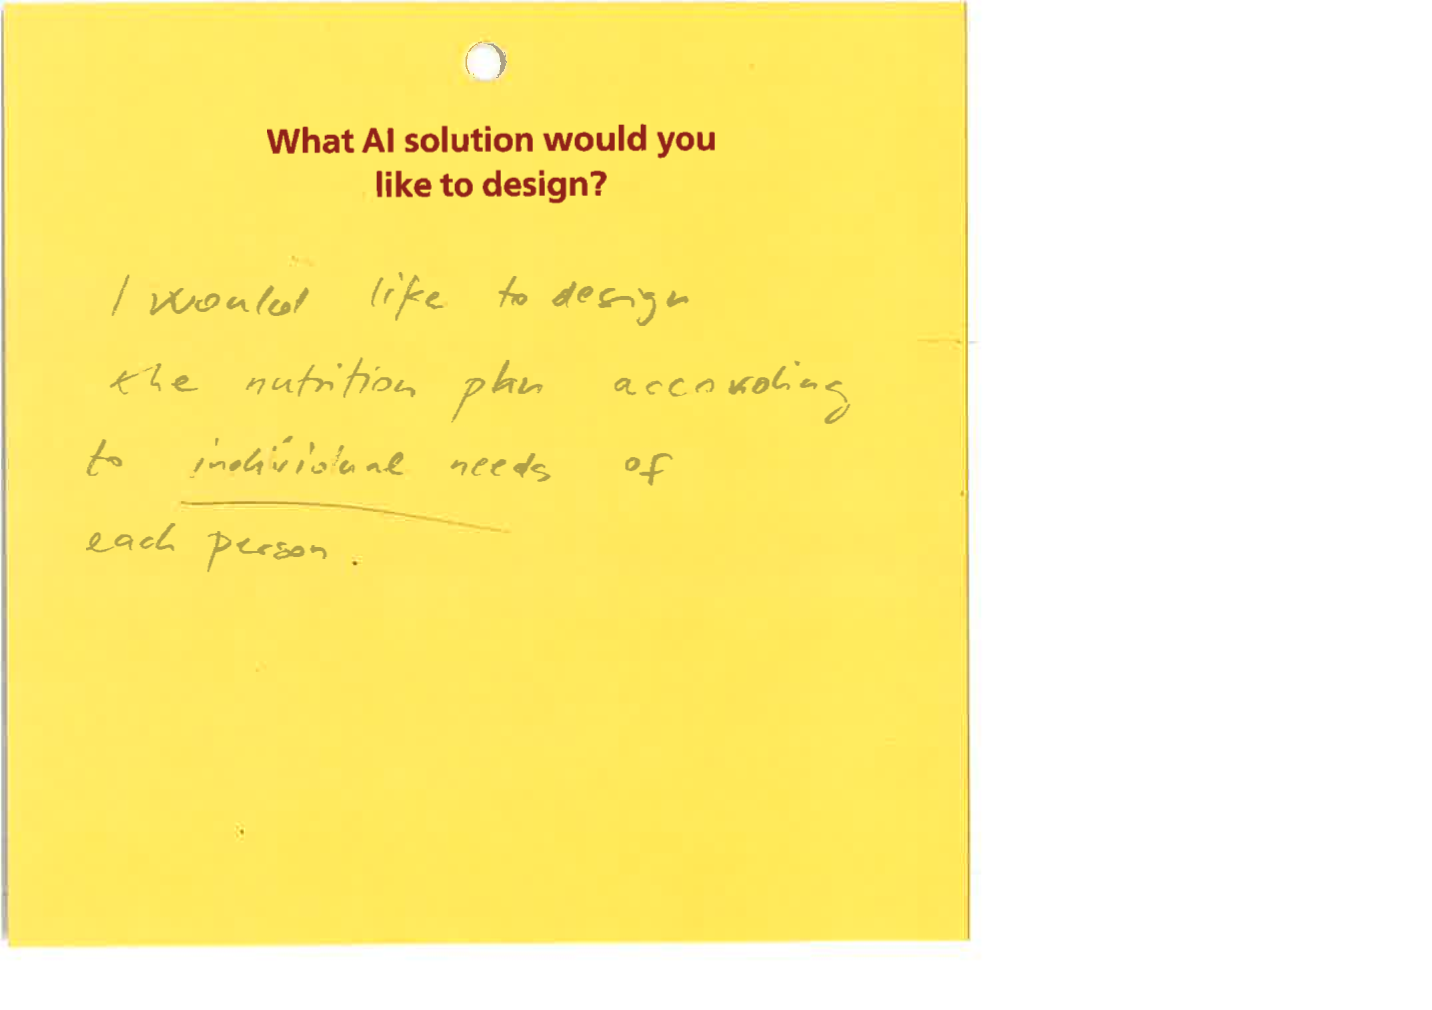 What AI solution would you
like to design?
I would like to design
the nutrition plan according
to individual needs of
each person.